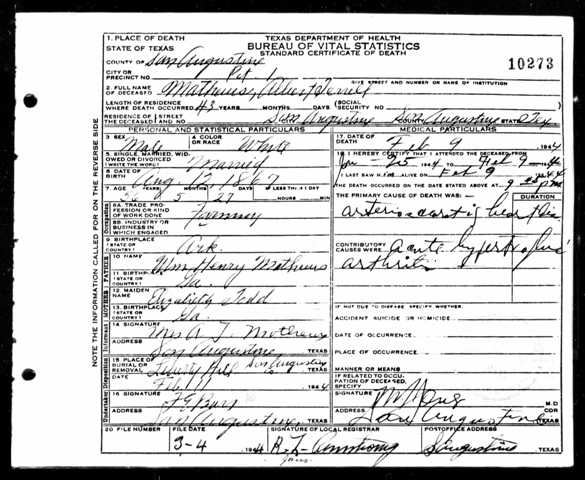 TEXAS DEPARTMENT OF HEALTH
BUREAU OF VITAL STATISTICS
STANDARD CERTIFICATE OF DEATH
10273
1. PLACE OF DEATH
STATE OF TEXAS
COUNTY OF San Augustine
CITY OR PRECINCT NO. Pct 1
GIVE STREET AND NUMBER OR NAME OF INSTITUTION
2. FULL NAME OF DECEASED Mathews, Albert
LENGTH OF RESIDENCE WHERE DEATH OCCURRED 43 YEARS MONTHS DAYS (SOCIAL SECURITY NO.
RESIDENCE OF THE DECEASED STREET AND NO. San Augustine San Augustine STATE Tex
PERSONAL AND STATISTICAL PARTICULARS
3 SEX Male 4 COLOR OR RACE White
5 SINGLE, MARRIED, WIDOWED OR DIVORCED (WRITE THE WORD) Married
6 DATE OF BIRTH Aug. 1867
7. AGE YEARS MONTHS DAYS IF LESS THAN 1 DAY
5 27
8A. TRADE, PROFESSION OR KIND OF WORK DONE Farming
8B. INDUSTRY OR BUSINESS IN WHICH ENGAGED
9 BIRTHPLACE (STATE OR COUNTRY) Ark.
FATHER
10 NAME Wm Henry Mathews
11 BIRTHPLACE (STATE OR COUNTRY) Ga.
MOTHER
12 MAIDEN NAME Elizabeth Todd
13 BIRTHPLACE (STATE OR COUNTRY) Ga.
Informant
14 SIGNATURE Mrs A T Mathews
ADDRESS San Augustine TEXAS
Disposition
15 PLACE OF BURIAL OR REMOVAL Hill San Augustine TEXAS
DATE Feb 11 1944
Undertaker
16 SIGNATURE
ADDRESS San Augustine TEXAS
MEDICAL PARTICULARS
17 DATE OF DEATH Feb 9 1944
18 I HEREBY CERTIFY THAT I ATTENDED THE DECEASED FROM
Jan 25 1944 TO Feb 9 1944
I LAST SAW H ALIVE ON Feb 9 1944
THE DEATH OCCURRED ON THE DATE STATED ABOVE AT M
THE PRIMARY CAUSE OF DEATH WAS: DURATION
heart dis
CONTRIBUTORY CAUSES WERE acute hypertrophic
arthritis
IF NOT DUE TO DISEASE, SPECIFY WHETHER:
ACCIDENT SUICIDE OR HOMICIDE
DATE OF OCCURRENCE
PLACE OF OCCURRENCE
MANNER OR MEANS
IF RELATED TO OCCUPATION OF DECEASED, SPECIFY
SIGNATURE M.D.
ADDRESS San Augustine TEXAS
20 FILE NUMBER FILE DATE 3-4 1944
SIGNATURE OF LOCAL REGISTRAR R. L. Armstrong
POSTOFFICE ADDRESS S Augustine TEXAS
NOTE THE INFORMATION CALLED FOR ON THE REVERSE SIDE.